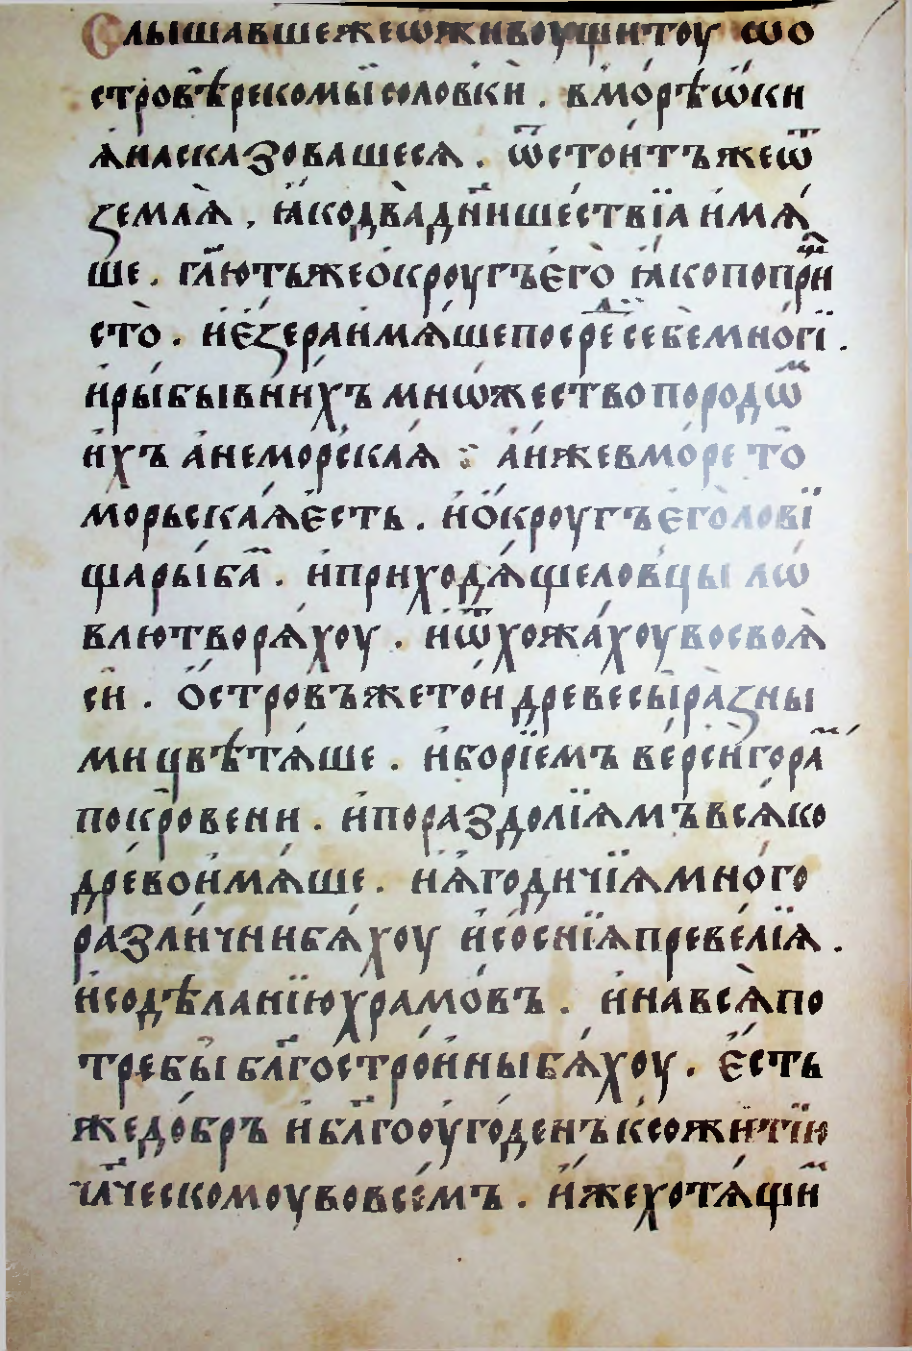 Слышавшежеѿживоущитоу ѡо
стровѣрекомыисоловкіи . вморѣѡки
ꙗнасказовашеся . ѿстоитъжеѿ
ꙁемлѧ̀ , ꙗ҆кодвадн҃ишествїа и҆мѧ́
ше . гл҃ютьжео҆кроугъє҆гò ꙗ҆копопри
стò . и҆є҆́ꙁераи҆мѧ́шепосреⷣсебѐмно́гї .
и҆ры́быв ни́хъ мнѡ́жествопородѡⷨ
и҆́хъ а҆неморскаѧ : а҆́ижевмо́ре то̀
морьскаѧє҆́сть . и҆ѻ҆́кроугъє҆гòлови
щары́ба . и҆приходѧ́щеловцы̀ лѡ
влютворѧ́хоу . и҆ѿхожа́хоувосвоѧ̀
си . Ѻ҆́стровъжетои древесы̀раꙁны
мицвѣтѧ́ше . и҆борїемъ ве́рси̑гораⷨ
покровени . и҆пораздолїѧмъвсѧко
дре́вои҆мѧ́ше . и҆ѧ҆́годичїѧмно́го
разли́чнибѧ́хоу и҆со́снїѧпреве́лїѧ .
и҆содѣланїюхрамо́въ . и҆навсѧ̀по
требы̀ бл҃гостро́йныбѧ́хоу . є҆́сть
жедо́бръ и҆бл҃гооу҆го́денъксожи́тїю
чл҃ческомоувовсе́мъ . и҆́жехотѧ́щиⷨ